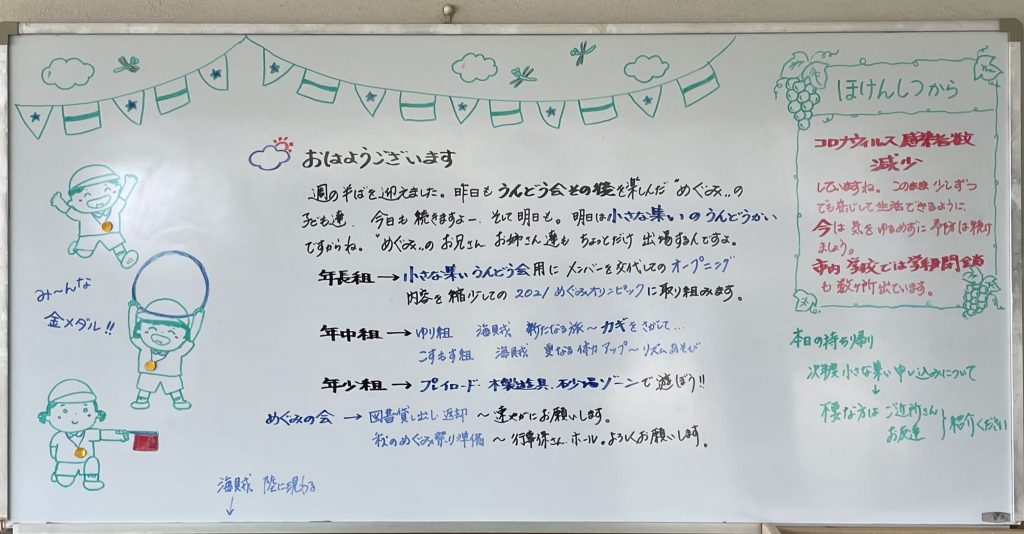 おはようございます
週の半ばを迎えました。昨日もうんどう会その後を楽しんだ〝めぐみ〟の
子ども達、今日も続きますよー、そして明日も。明日は小さな集いのうんどうかい
ですからね。〝めぐみ〟のお兄さんお姉さん達もちょっとだけ出場するんですよ。
年長組→小さな集いうんどう会用にメンバーを交代してのオープニング
内容を縮少しての2021めぐみオリンピックに取り組みます。
年中組→ゆり組 海賊 新たなる旅〜カギをさがして…
こすもす組 海賊 更なる体力アップ〜リズムあそび
年少組→プレイロード、木製遊具、砂場ゾーンで遊ぼう!!
めぐみの会→図書貸し出し・返却〜速やかにお願いします。
秋のめぐみ祭り準備〜行事係さん、ホール。よろしくお願いします。
み〜んな
金メダル!!
海賊、陸に現わる
↓
ほけんしつから
コロナウィルス感染者数
減少
していますね。このまま少しずつ
でも安心して生活できるように
今は気をゆるめずに予防は続け
ましょう。
市内学校では学級閉鎖
も数ヶ所出ています。
本日の持ち帰り
次年度小さな集い申し込みについて
↓
不要な方はご近所さん
お友達
}紹介ください